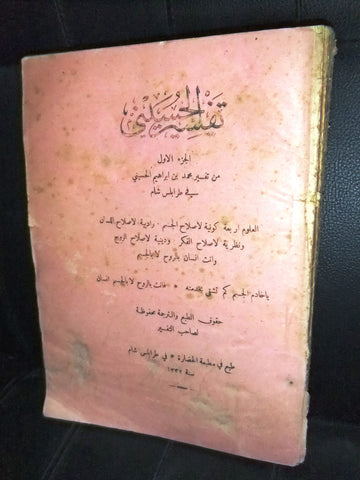 تفسير الحسيني
الجزء الاول
من تفسير محمد بن ابراهيم الحسيني
في طرابلس شام
العلوم اربعة كونية لاصلاح الجسم . وادبية لاصلاح اللسان
ونظرية لاصلاح الفكر . ودينية لاصلاح الروح
وانت انسان بالروح لا بالجسم
ياخادم الجسم كم تشقى بخدمته * فانت بالروح لا بالجسم انسان
حقوق الطبع والترجمة محفوظة
لصاحب التفسير
طبع في مطبعة الحضارة * في طرابلس شام
سنة ١٣٣٢